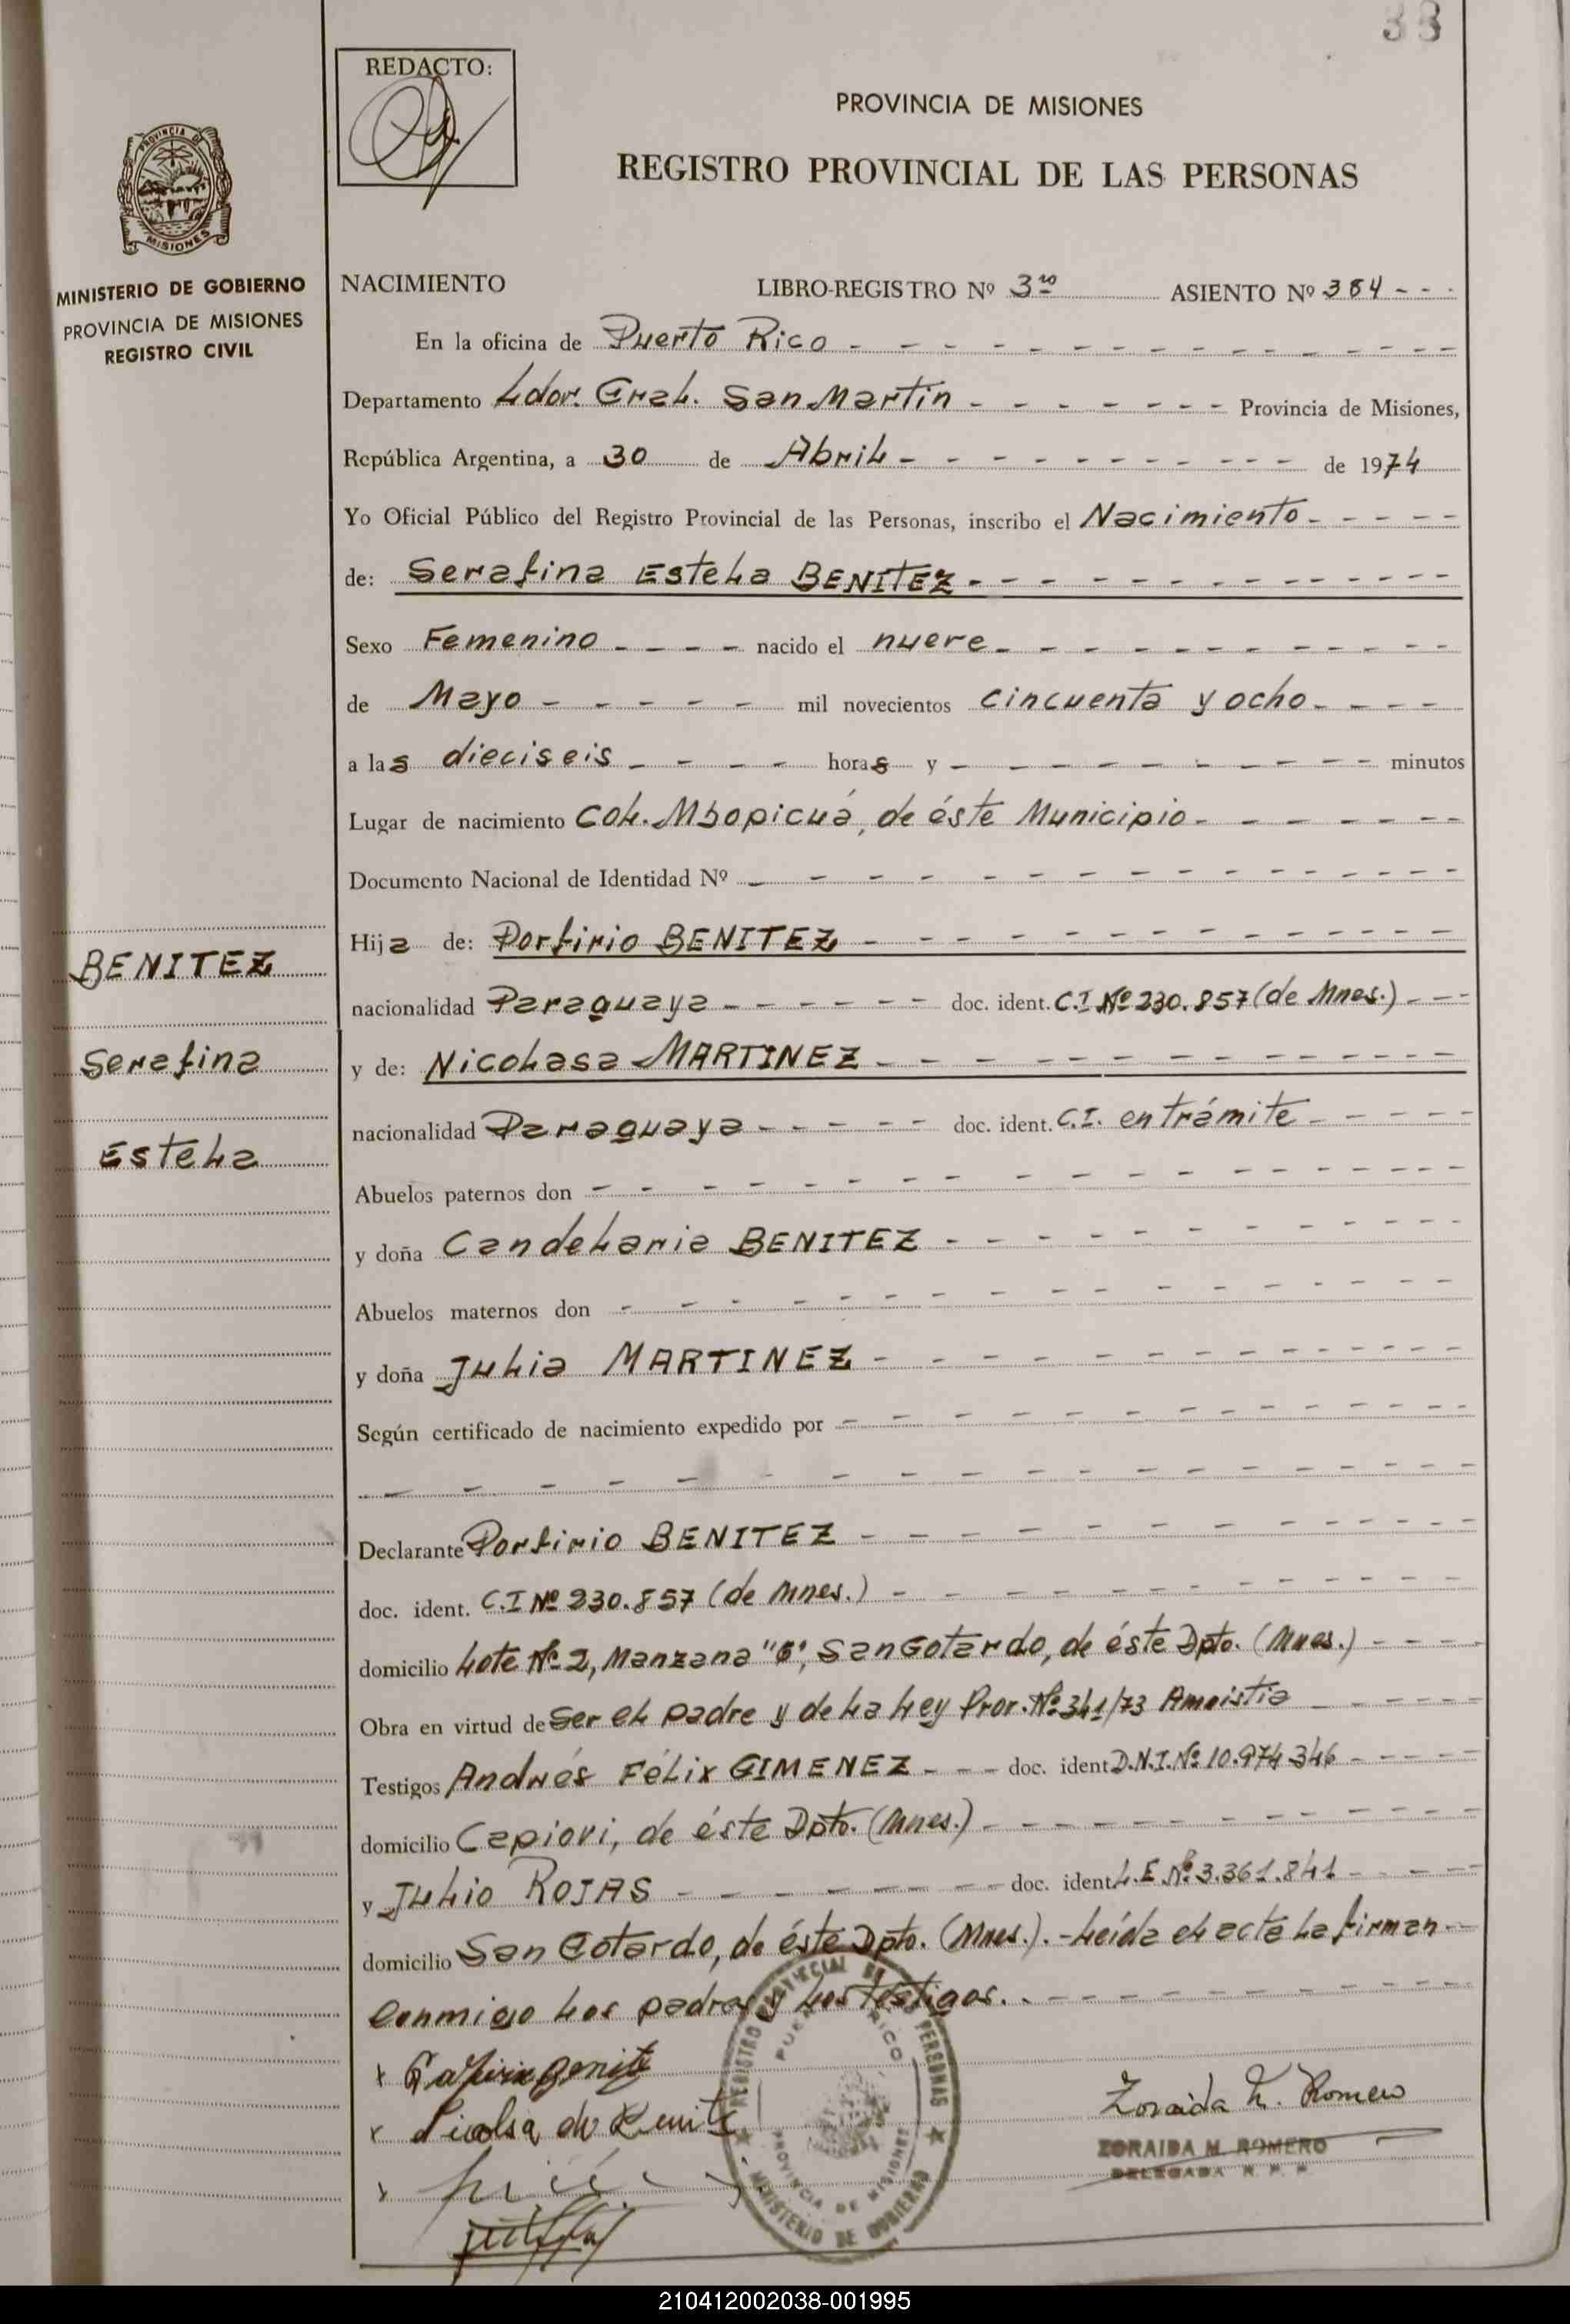 33
REDACTO:
PROVINCIA DE MISIONES
REGISTRO PROVINCIAL DE LAS PERSONAS
PROVINCIA DE
MISIONES
MINISTERIO DE GOBIERNO
PROVINCIA DE MISIONES
REGISTRO CIVIL
NACIMIENTO LIBRO-REGISTRO Nº 3ro ASIENTO Nº 384 - - -
En la oficina de Puerto Rico - - -
Departamento Ldor. Gral. San Martín - - - Provincia de Misiones,
República Argentina, a 30 de Abril - - - de 1974
Yo Oficial Público del Registro Provincial de las Personas, inscribo el Nacimiento - - -
de: Serafina Estela BENITEZ - - -
Sexo Femenino - - - nacido el nueve - - -
de Mayo - - - mil novecientos cincuenta y ocho - - -
a las dieciseis - - - horas y - - - minutos
Lugar de nacimiento Col. Mbopicuá, de éste Municipio - - -
Documento Nacional de Identidad Nº - - -
Hija de: Porfirio BENITEZ - - -
nacionalidad Paraguaya - - - doc. ident. C.I Nº 230.857 (de Mnes.) - - -
y de: Nicolasa MARTINEZ - - -
nacionalidad Paraguaya - - - doc. ident. C.I. en trámite - - -
Abuelos paternos don - - -
y doña Candelaria BENITEZ - - -
Abuelos maternos don - - -
y doña Julia MARTINEZ - - -
Según certificado de nacimiento expedido por - - -
- - -
Declarante Porfirio BENITEZ - - -
doc. ident. C.I Nº 230.857 (de Mnes.) - - -
domicilio Lote Nº 2, Manzana "6", San Gotardo, de éste Dpto. (Mnes.) - - -
Obra en virtud de Ser el padre y de la Ley Prov. Nº 341/73 Amnistía - - -
Testigos Andrés Félix GIMENEZ - - - doc. ident D.N.I. Nº 10.974.346 - - -
domicilio Capioví, de éste Dpto. (Mnes.) - - -
y Julio ROJAS - - - doc. ident L.E. Nº 3.361.841 - - -
domicilio San Gotardo, de éste Dpto. (Mnes.). - Leída el acta la firman -
conmigo los padres y los testigos. - - -
BENITEZ
Serafina
Estela
REGISTRO PROVINCIAL DE LAS PERSONAS
PUERTO RICO
PROVINCIA DE MISIONES
MINISTERIO DE GOBIERNO
Zoraida M. Romero
ZORAIDA M. ROMERO
DELEGADA R. P. P.
210412002038-001995